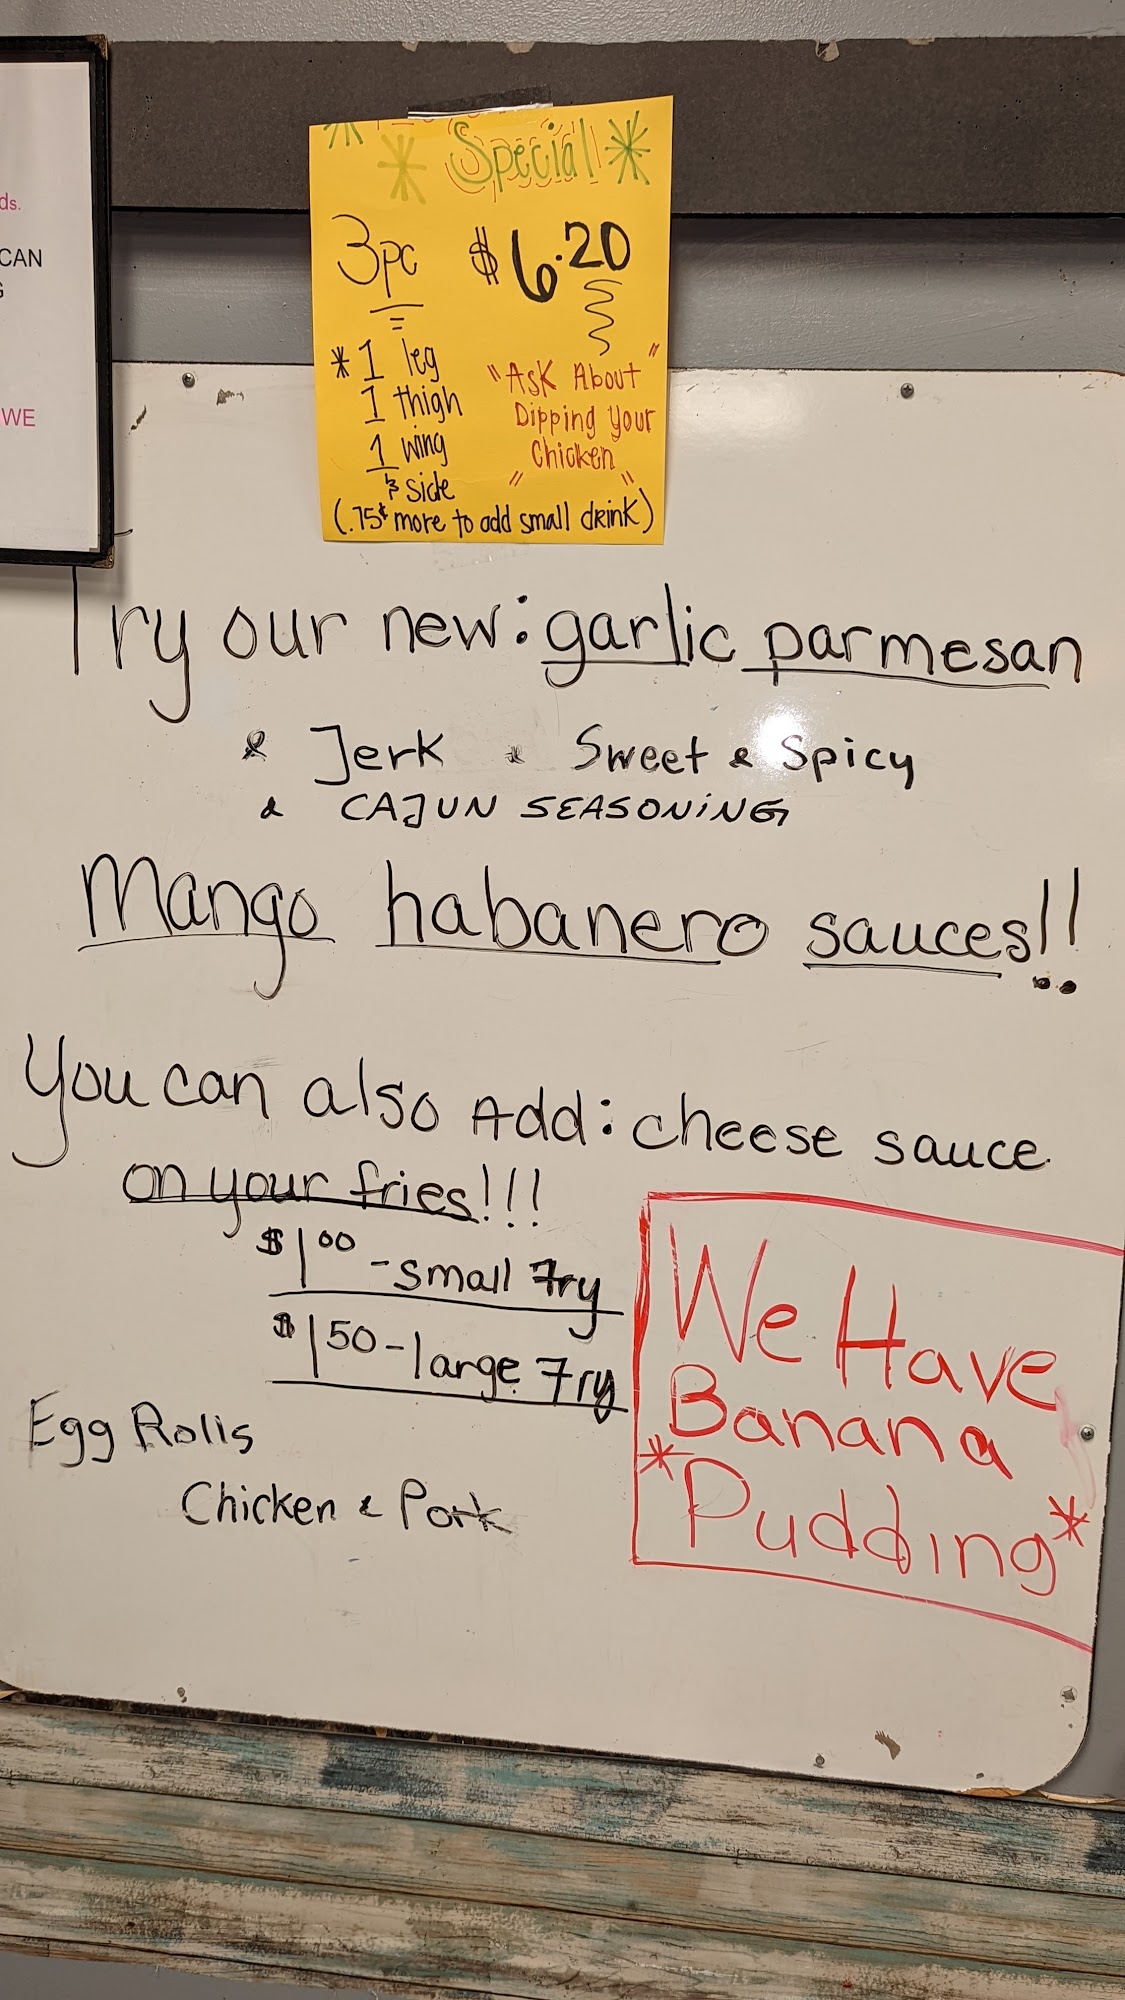 ds.
CAN
G
WE
* Special! *
3pc $6.20
* 1 leg
1 thigh
1 wing
& side
"Ask About"
Dipping your
Chicken
" "
(.75¢ more to add small drink)
Try our new: garlic parmesan
& Jerk * Sweet & Spicy
& CAJUN SEASONING
Mango habanero sauces!!
You can also Add: cheese sauce
on your fries!!!
$1.00 - small Fry
$1.50 - large Fry
Egg Rolls
Chicken & Pork
We Have
Banana
*Pudding*